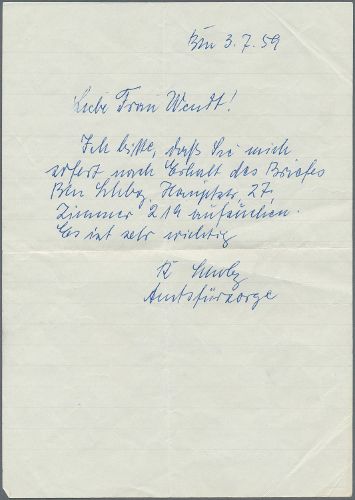 Bln 3.7.59
Liebe Frau Wendt!
Ich bitte, daß Sie mich
sofort nach Erhalt des Briefes
Bln Schbg, Hauptstr. 27,
Zimmer 219 aufsuchen.
Es ist sehr wichtig
K Scholz
Amtsfürsorge